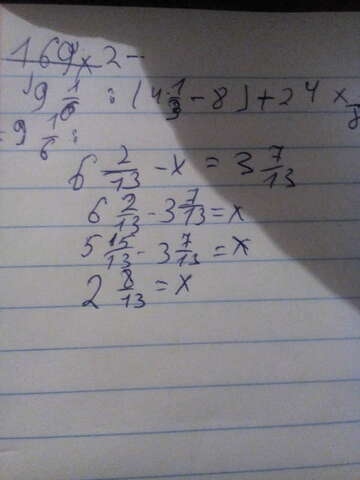 169 x 2 -
9 1/6 : (4 1/3 - 8) + 24 x
= 9 1/6 :
6 2/13 - x = 3 7/13
6 2/13 - 3 7/13 = x
5 15/13 - 3 7/13 = x
2 8/13 = x